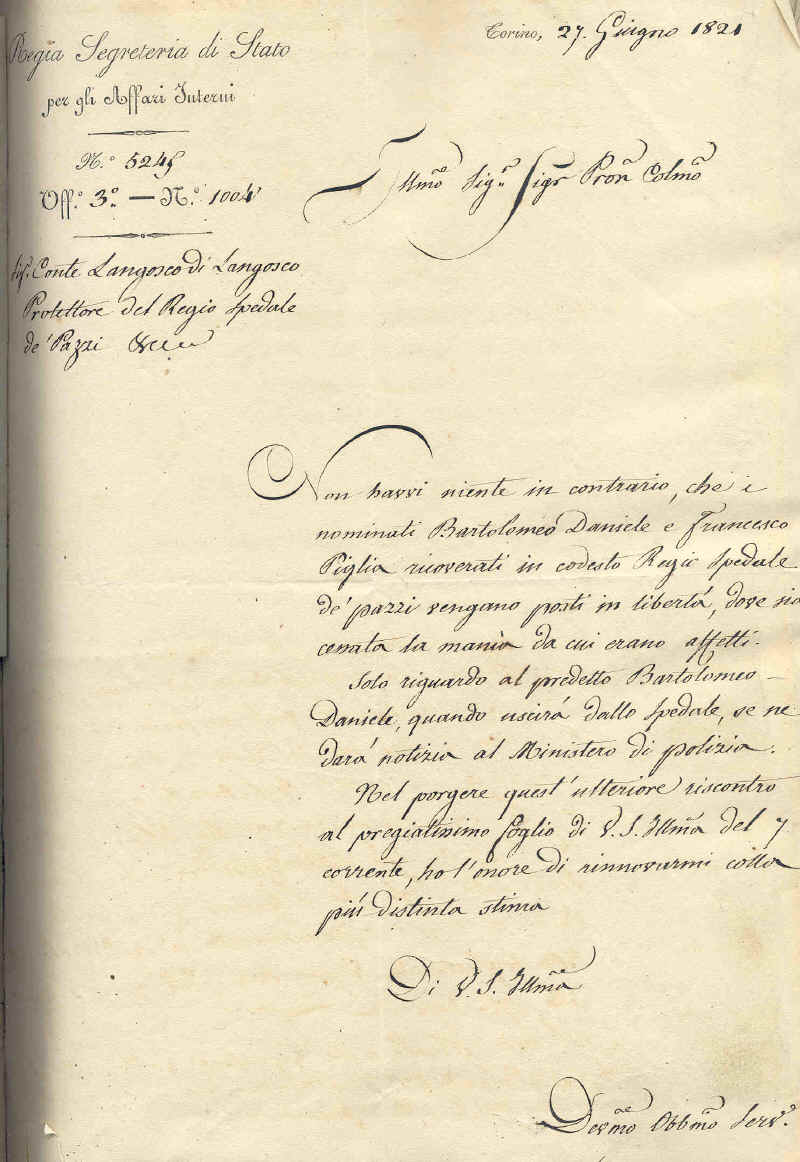 Regia Segreteria di Stato
per gli Affari Interni
N.° 5245
Off.° 3.° — N.° 1004
Torino, 27. Giugno 1821
Illmo Sig.r Sigr Pron Colmo
Sig. Conte Langosco di Langosco
Protettore del Regio Spedale
de' Pazzi &c
Non havvi niente in contrario, che i
nominati Bartolomeo Daniele e Francesco
Piglia ricoverati in codesto Regio Spedale
de' pazzi vengano posti in libertá, dove sia
cessata la manìa da cui erano affetti.
Solo riguardo al predetto Bartolomeo
Daniele, quando uscirá dallo Spedale, se ne
dará notizia al Ministero di polizia.
Nel porgere quest'ulteriore riscontro
al pregiatissimo foglio di V. S. Illma del 7
corrente, ho l'onore di rinnovarmi colla
piú distinta stima
Di V. S. Illma
Devmo Obbmo Serv.e